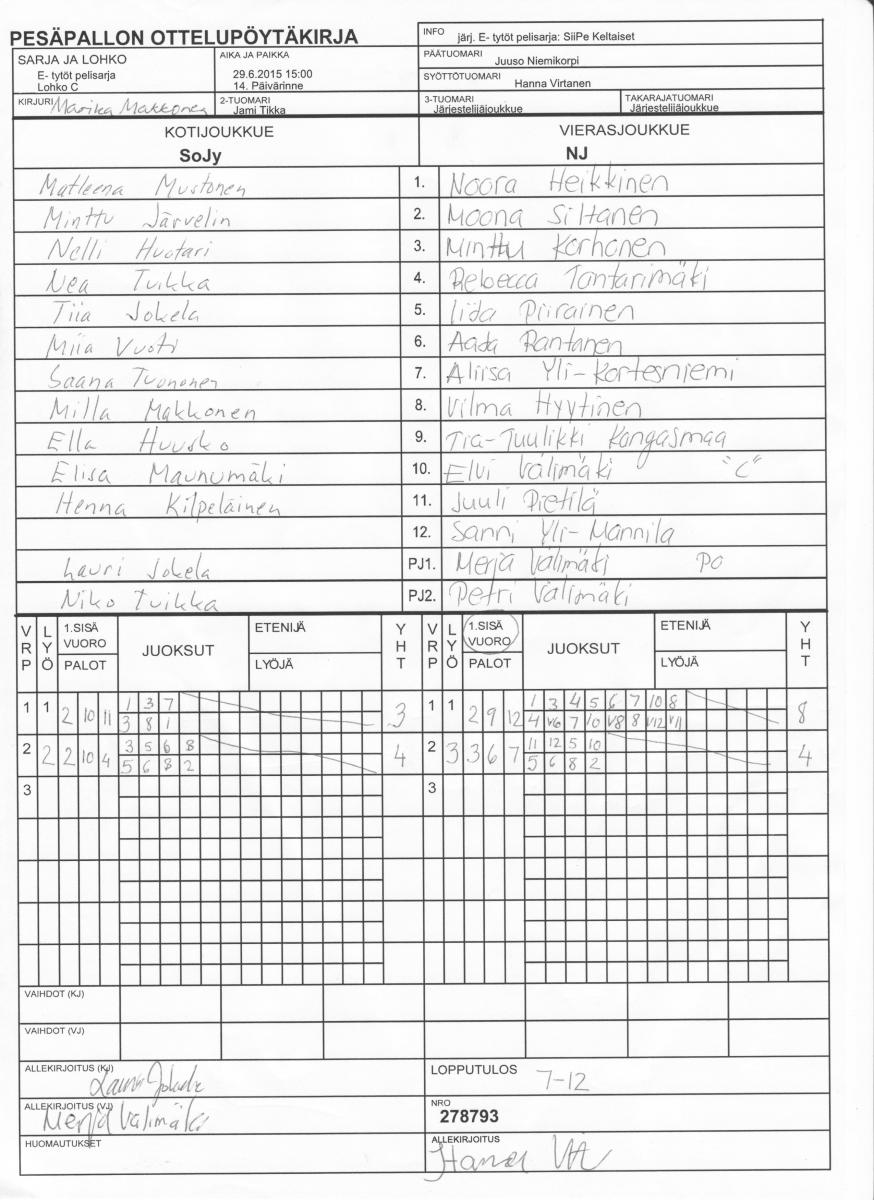 PESÄPALLON OTTELUPÖYTÄKIRJA
INFO järj. E- tytöt pelisarja: SiiPe Keltaiset
SARJA JA LOHKO
E- tytöt pelisarja
Lohko C
AIKA JA PAIKKA
29.6.2015 15:00
14. Päivärinne
PÄÄTUOMARI Juuso Niemikorpi
SYÖTTÖTUOMARI Hanna Virtanen
KIRJURI Marika Makkonen
2-TUOMARI
Jami Tikka
3-TUOMARI
Järjestelijäjoukkue
TAKARAJATUOMARI
Järjestelijäjoukkue
KOTIJOUKKUE
SoJy
VIERASJOUKKUE
NJ
Matleena Mustonen 1. Noora Heikkinen
Minttu Järvelin 2. Moona Siltanen
Nelli Huotari 3. Minttu Korhonen
Nea Tuikka 4. Rebecca Tantarimäki
Tiia Jokela 5. Iida Piirainen
Miia Vuoti 6. Aada Rantanen
Saana Tuononen 7. Aliisa Yli-Kortesniemi
Milla Makkonen 8. Vilma Hyytinen
Ella Huusko 9. Tia-Tuulikki Kangasmaa
Elisa Maunumäki 10. Elvi Välimäki "C"
Henna Kilpeläinen 11. Juuli Pietilä
12. Sanni Yli-Mannila
Lauri Jokela PJ1. Merja Välimäki PO
Niko Tuikka PJ2. Petri Välimäki
VRP LYÖ 1.SISÄ VUORO PALOT JUOKSUT ETENIJÄ LYÖJÄ YHT VRP LYÖ 1.SISÄ VUORO PALOT JUOKSUT ETENIJÄ LYÖJÄ YHT
1 1 2 10 11 1 3 7 3 1 1 2 9 12 1 3 4 5 6 7 10 8 8
3 8 1 4 V6 7 10 V8 8 V12 V11
2 2 2 10 4 3 5 6 8 4 2 3 3 6 7 11 12 5 10 4
5 6 8 2 5 6 8 2
3 3
VAIHDOT (KJ)
VAIHDOT (VJ)
ALLEKIRJOITUS (KJ) Lauri Jokela
LOPPUTULOS 7-12
ALLEKIRJOITUS (VJ) Merja Välimäki
NRO
278793
HUOMAUTUKSET
ALLEKIRJOITUS